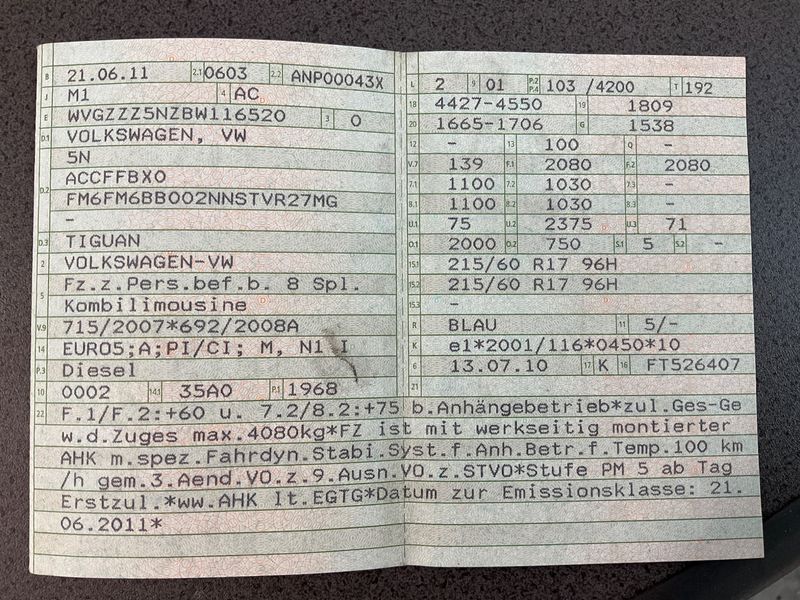 B 21.06.11 2.1 0603 2.2 ANP00043X
J M1 4 AC
E WVGZZZ5NZBW116520 3 0
D.1 VOLKSWAGEN, VW
5N
ACCFFBX0
D.2 FM6FM6BB002NNSTVR27MG
-
D.3 TIGUAN
2 VOLKSWAGEN-VW
5 Fz.z.Pers.bef.b. 8 Spl.
Kombilimousine
V.9 715/2007*692/2008A
14 EURO5;A;PI/CI; M, N1 I
P.3 Diesel
10 0002 14.1 35A0 P.1 1968
L 2 9 01 P.2 P.4 103 /4200 T 192
18 4427-4550 19 1809
20 1665-1706 G 1538
12 - 13 100 Q -
V.7 139 F.1 2080 F.2 2080
7.1 1100 7.2 1030 7.3 -
8.1 1100 8.2 1030 8.3 -
U.1 75 U.2 2375 U.3 71
O.1 2000 O.2 750 S.1 5 S.2 -
15.1 215/60 R17 96H
15.2 215/60 R17 96H
15.3 -
R BLAU 11 5/-
K e1*2001/116*0450*10
6 13.07.10 17 K 16 FT526407
21
22 F.1/F.2:+60 u. 7.2/8.2:+75 b.Anhängebetrieb*zul.Ges-Ge
w.d.Zuges max.4080kg*FZ ist mit werkseitig montierter
AHK m.spez.Fahrdyn.Stabi.Syst.f.Anh.Betr.f.Temp.100 km
/h gem.3.Aend.VO.z.9.Ausn.VO.z.STVO*Stufe PM 5 ab Tag
Erstzul.*ww.AHK lt.EGTG*Datum zur Emissionsklasse: 21.
06.2011*